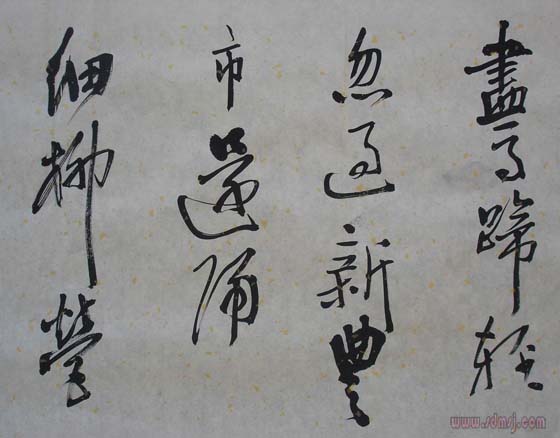 盡馬蹄輕
忽過新豐
市還歸
細柳營
www.sdmsj.com